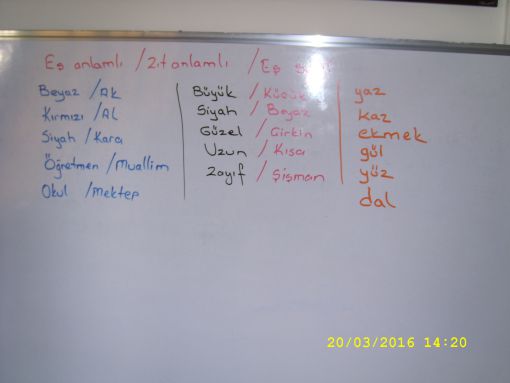 Eş anlamlı / Zıt anlamlı / Eş
Beyaz / Ak
Kırmızı / Al
Siyah / Kara
Öğretmen / Muallim
Okul / mektep
Büyük / Küçük
Siyah / Beyaz
Güzel / Çirkin
Uzun / Kısa
Zayıf / Şişman
yaz
kaz
ekmek
gül
yüz
dal
20/03/2016 14:20